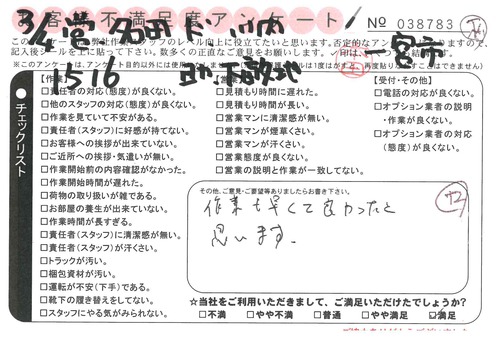 お客様不満足度アンケート
№ 038783
一宮市
1516
記入後シールを上に貼って下さい。数多くのご正直なご意見をお願いします。
※このアンケートは、アンケート目的以外には使用
【作業】
□責任者の対応(態度)が良くない。
□他のスタッフの対応(態度)が良くない。
□作業を見ていて不安がある。
□責任者(スタッフ)に好感が持てない。
□お客様への挨拶が出来ていない。
□ご近所への挨拶・気遣いが無い。
□作業開始前の内容確認がなかった。
□作業開始時間が遅れた。
□荷物の取り扱いが雑である。
□お部屋の養生が出来ていない。
□作業時間が長すぎる。
□責任者(スタッフ)に清潔感が無い。
□責任者(スタッフ)が汗くさい。
□トラックが汚い。
□梱包資材が汚い。
□運転が不安(下手)である。
□靴下の履き替えをしてない。
□スタッフにやる気がみられない。
【営業】
□見積もり時間に遅れた。
□見積もり時間が長い。
□営業マンに清潔感が無い。
□営業マンが煙草くさい。
□営業マンが汗くさい。
□営業態度が良くない。
□営業の説明と作業が一致してない。
【受付・その他】
□電話の対応が良くない。
□オプション業者の説明
・作業が良くない。
□オプション業者の対応
(態度)が良くない。
チェックリスト
その他、ご意見・ご要望等ありましたらお書き下さい。
作業も早くて良かったと
思います。
☆当社をご利用いただきまして、ご満足いただけたでしょうか?
□不満 □やや不満 □普通 □やや満足 ☑満足